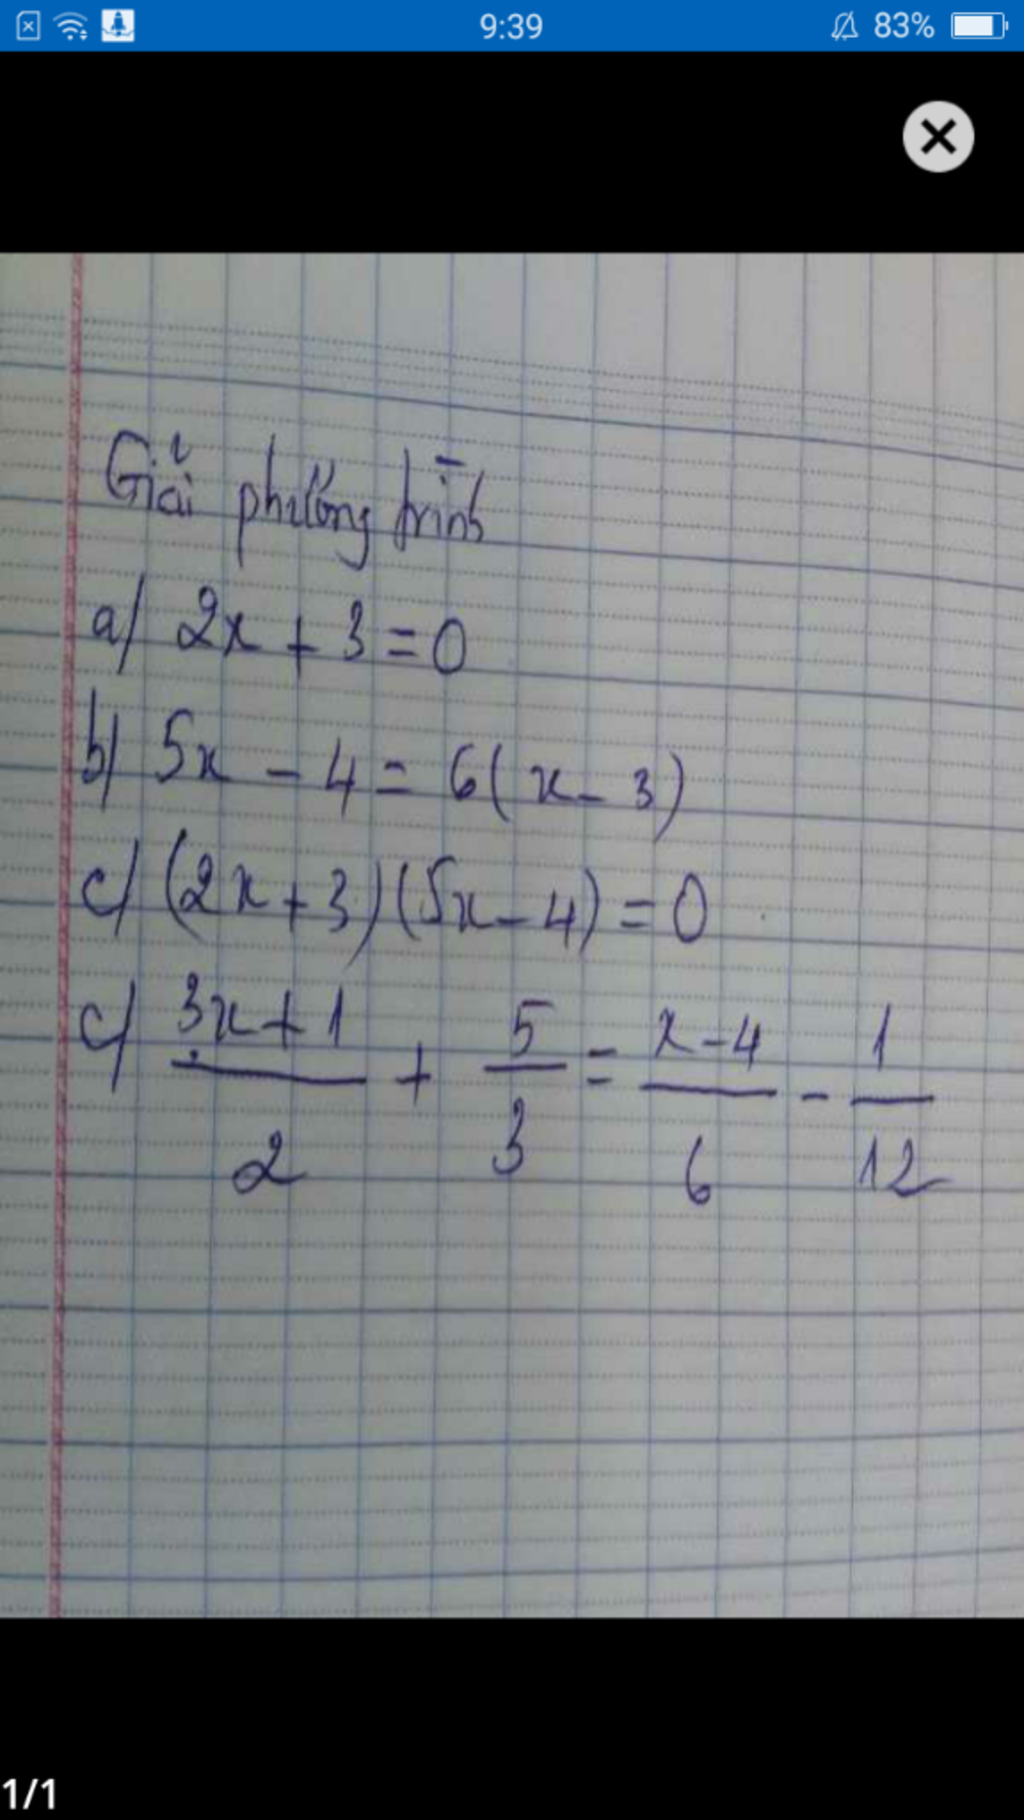 9:39
83%
Giải phương trình
a/ 2x + 3 = 0
b/ 5x - 4 = 6(x - 3)
c/ (2x + 3)(5x - 4) = 0
c/ \frac{3x+1}{2} + \frac{5}{3} = \frac{x-4}{6} - \frac{1}{12}
1/1